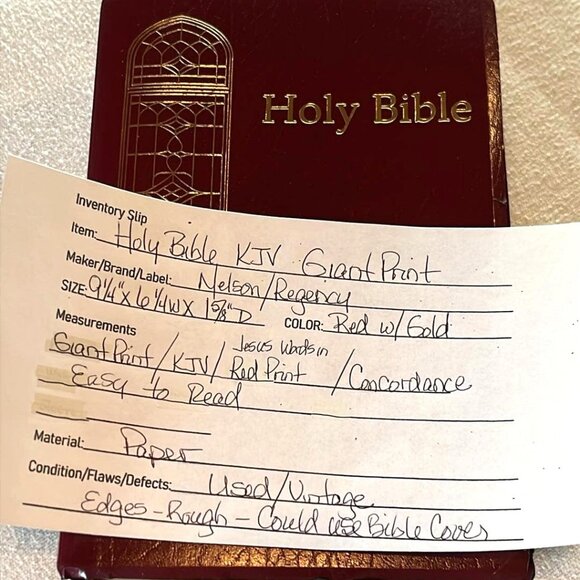 Holy Bible
Inventory Slip
Item: Holy Bible KJV Giant Print
Maker/Brand/Label: Nelson/Regency
SIZE: 9 1/4" X 6 1/4 W X 1 5/8" D COLOR: Red w/ Gold
Measurements
Giant Print / KJV / Jesus Words in Red Print / Concordance
Easy to Read
Material: Paper
Condition/Flaws/Defects: Used/Vintage
Edges - Rough - Could use Bible Cover